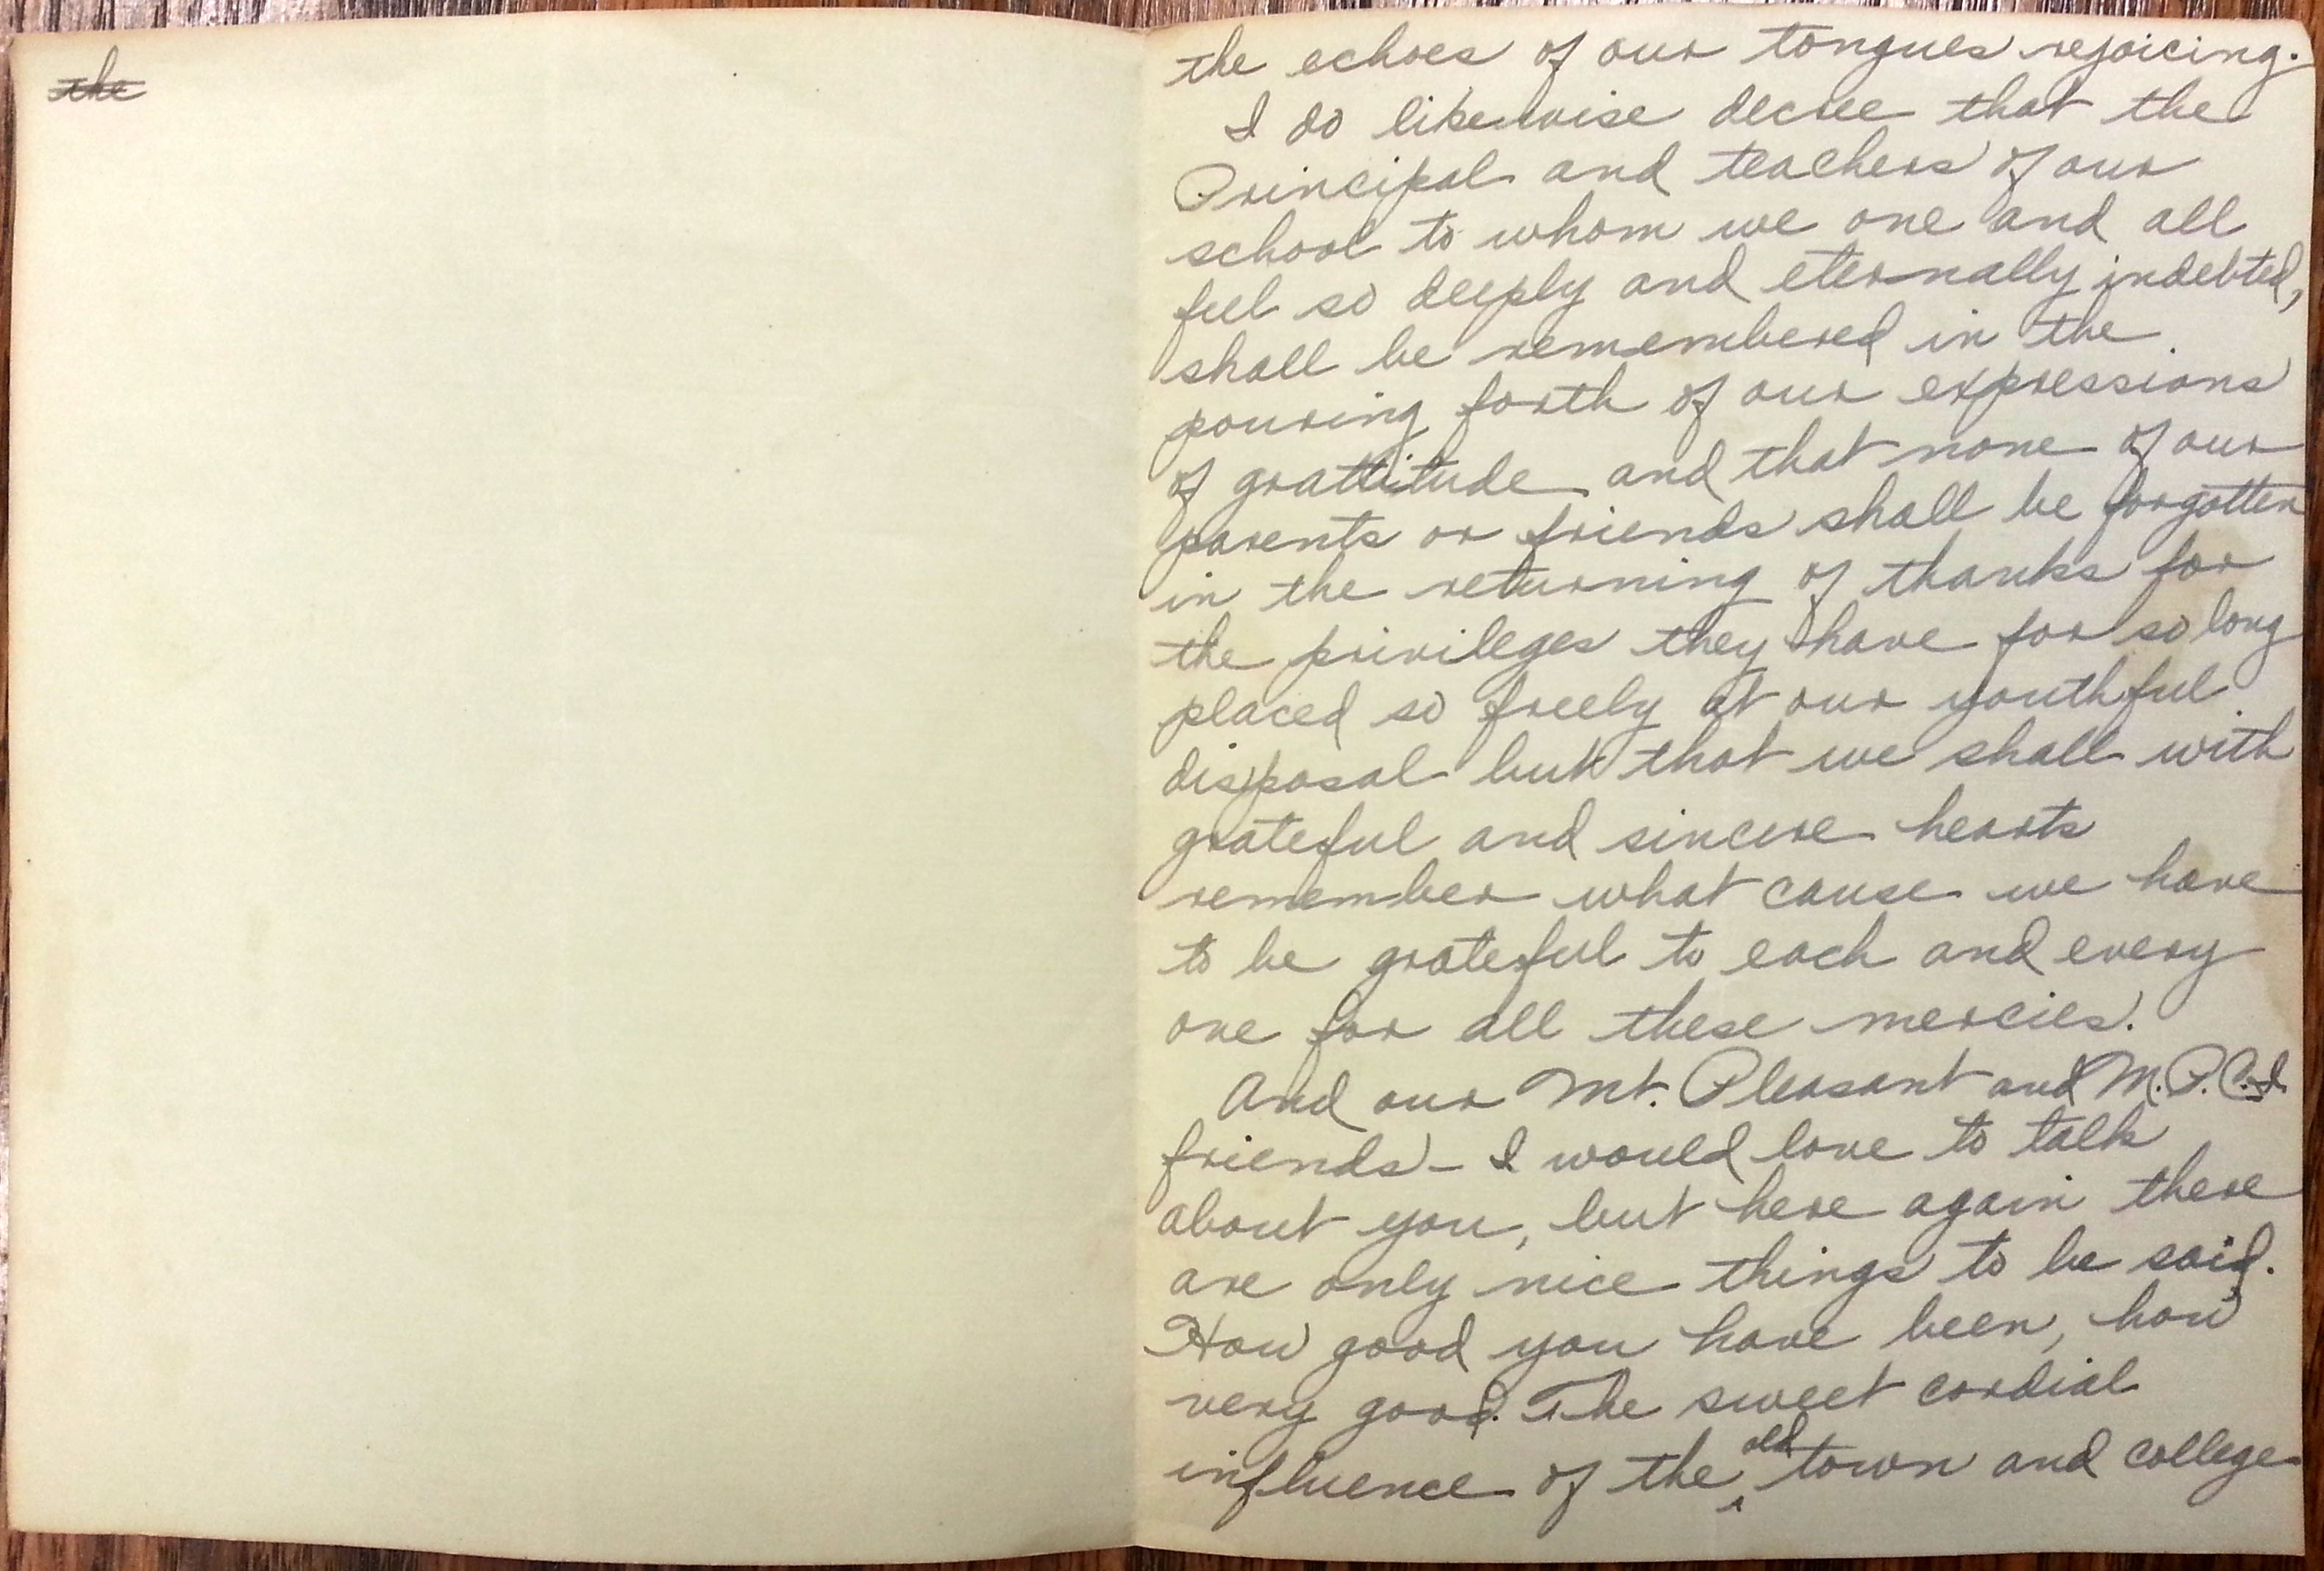 the
the echoes of our tongues rejoicing.
I do likewise decree that the
Principal and teachers of our
school to whom we one and all
feel so deeply and eternally indebted,
shall be remembered in the
pouring forth of our expressions
of grattitude and that none of our
parents or friends shall be forgotten
in the returning of thanks for
the privileges they have for so long
placed so freely at our youthful
disposal but that we shall with
grateful and sincere hearts
remember what cause we have
to be grateful to each and every
one for all these mercies.
And our Mt. Pleasant and M.P.C.I.
friends - I would love to talk
about you, but here again there
are only nice things to be said.
How good you have been, how
very good. The sweet cordial
influence of the old town and college